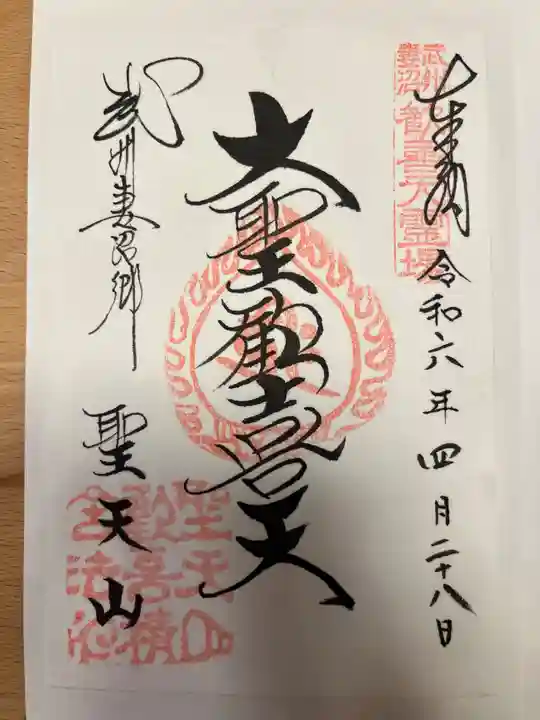 奉拝 令和六年四月二十八日
武州妻沼歓喜天霊場
大聖歓喜天
武州妻沼郷 聖天山